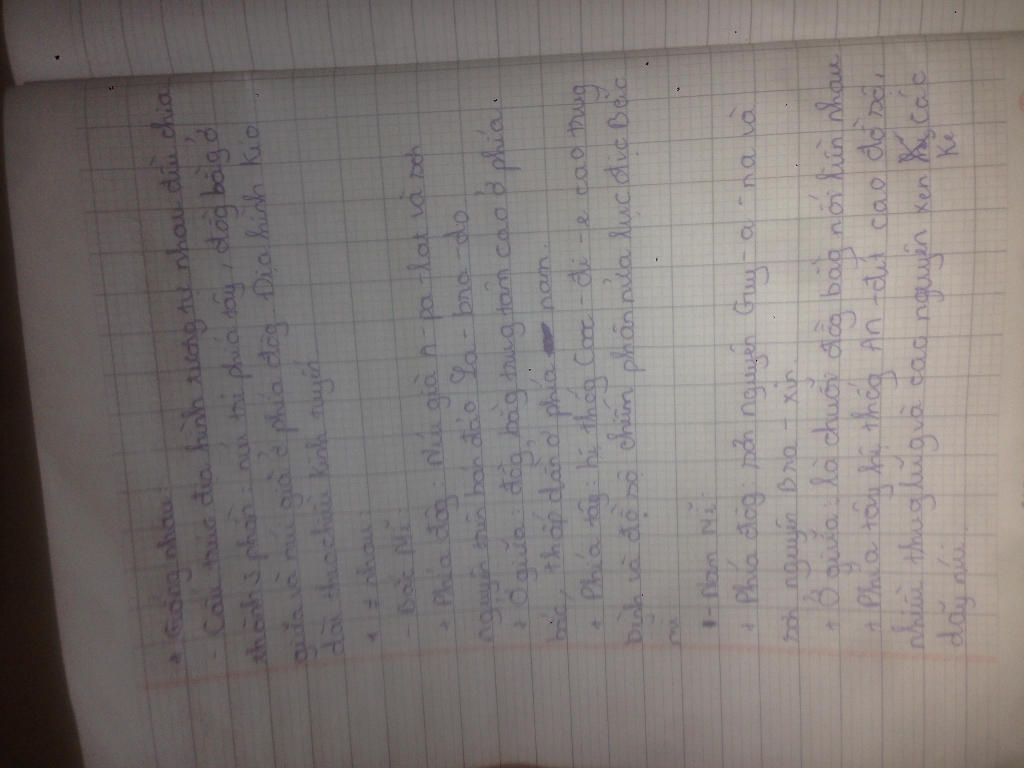 * Giống nhau:
- Cấu trúc địa hình tương tự nhau đều chia
thành 3 phần: núi trẻ phía tây, đồg bằg ở
giữa và núi già ở phía đôg. Địa hình kéo
dài theo chiều kinh tuyến
* ≠ nhau:
- Bắc Mĩ:
+ Phía đôg: Núi già A-pa-lat và sơn
nguyên trên bán đảo La-bra-do
+ Ở giữa: đồg bằg trug tâm cao ở phía
bắc, thấp dần ở phía nam.
+ Phía tây: hệ thốg Cooc-di-e cao trug
bình và đồ sộ chiếm phân nửa lục địa Bắc
Mĩ
- Nam Mĩ:
+ Phía đôg: sơn nguyên Guy-a-na và
sơn nguyên Bra-xin
+ Ở giữa: là chuỗi đồg bằg nối liền nhau
+ Phía tây hệ thốg An-det cao đồ sộ,
nhiều thug lũg và cao nguyên xen kẽ các
dãy núi.